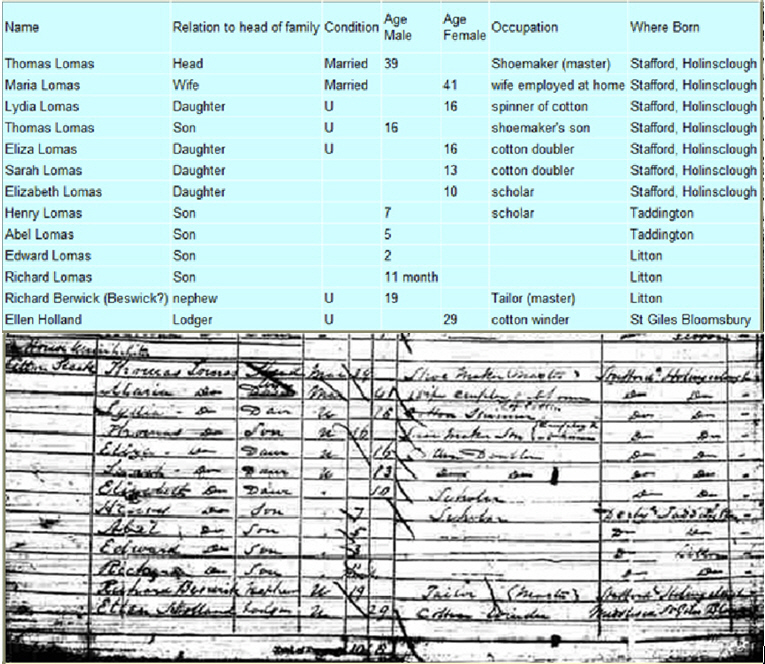 Name Relation to head of family Condition Age Male Age Female Occupation Where Born
Thomas Lomas Head Married 39 Shoemaker (master) Stafford, Holinsclough
Maria Lomas Wife Married 41 wife employed at home Stafford, Holinsclough
Lydia Lomas Daughter U 16 spinner of cotton Stafford, Holinsclough
Thomas Lomas Son U 16 shoemaker's son Stafford, Holinsclough
Eliza Lomas Daughter U 16 cotton doubler Stafford, Holinsclough
Sarah Lomas Daughter 13 cotton doubler Stafford, Holinsclough
Elizabeth Lomas Daughter 10 scholar Stafford, Holinsclough
Henry Lomas Son 7 scholar Taddington
Abel Lomas Son 5 Taddington
Edward Lomas Son 2 Litton
Richard Lomas Son 11 month Litton
Richard Berwick (Beswick?) nephew U 19 Tailor (master) Litton
Ellen Holland Lodger U 29 cotton winder St Giles Bloomsbury
Thomas Lomas Head Mar 39 Shoe Maker Master
Maria Do 41 Wife employ at home Do Do
Lydia Do Daur U 16 Cotton Spinner Do Do
Thomas Do Son U 16 Shoe Maker Son Do Do
Eliza Do Daur U 16 Cotton Doubler Do Do
Sarah Do Daur U 13 Do Do Do Do
Elizabeth Do Daur 10 Scholar Do Do
Henry Do Son 7 Scholar Derby Taddington
Abel Do Son 5 Do
Edward Do Son Do Litton
Richard Do Son Do Do
Richard Beswick Nephew U 19 Tailor (Master)
Ellen Holland Lodger U 29 Cotton Winder Middlesex St Giles